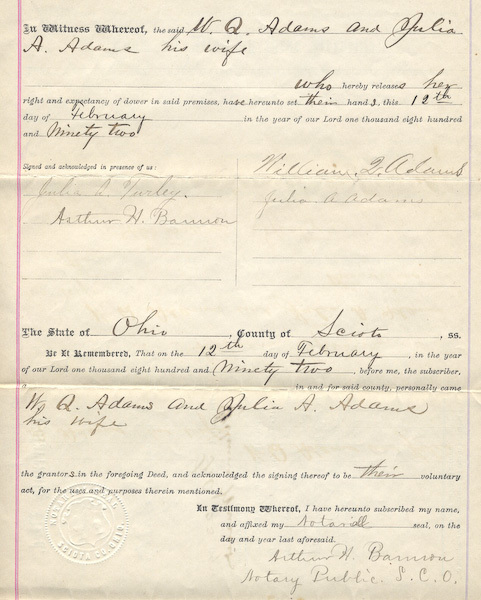 In Witness Whereof, the said W. Q. Adams and Julia
A. Adams his wife
who hereby releases her
right and expectancy of dower in said premises, have hereunto set their hands, this 12th
day of February in the year of our Lord one thousand eight hundred
and Ninety two
Signed and acknowledged in presence of us:
William. Q. Adams
Julia A Adams
Julia Turley.
Arthur H. Bannon
The State of Ohio, County of Scioto, ss.
Be It Remembered, That on the 12th day of February, in the year
of our Lord one thousand eight hundred and Ninety two, before me, the subscriber,
a in and for said county, personally came
W. Q. Adams and Julia A. Adams
his wife
the grantors in the foregoing Deed, and acknowledged the signing thereof to be their voluntary
act, for the uses and purposes therein mentioned.
In Testimony Whereof, I have hereunto subscribed my name,
and affixed my Notarial seal, on the
day and year last aforesaid.
Arthur H. Bannon
Notary Public. S. C. O.